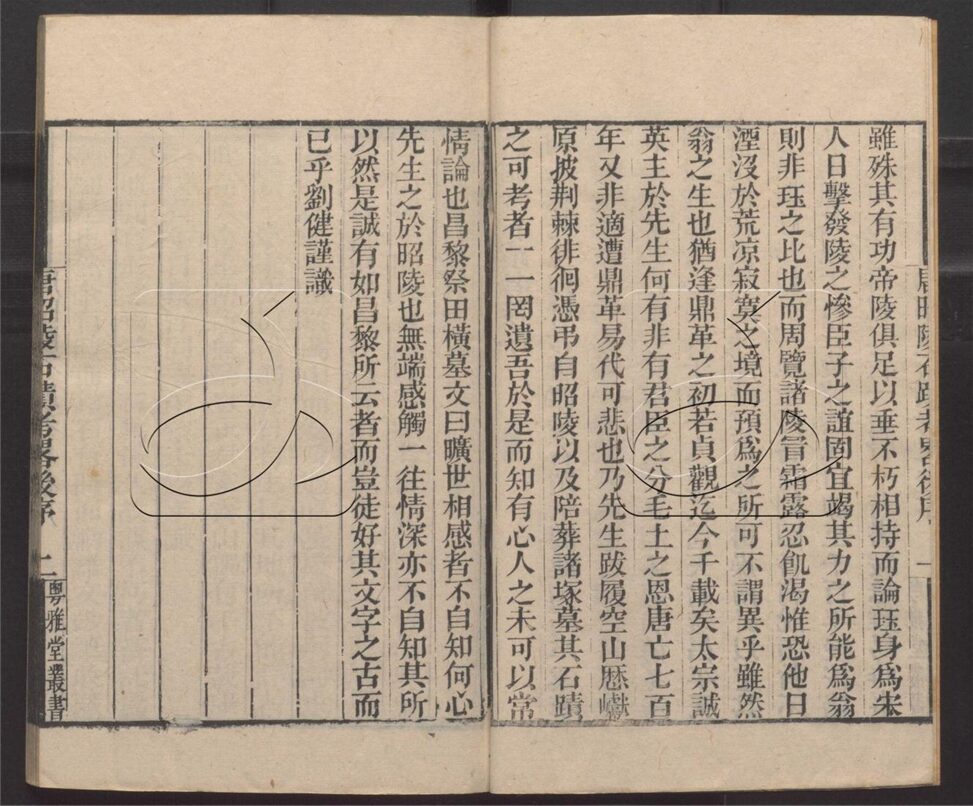 雖殊其有功帝陵俱足以垂不朽相持而論珏身爲宋
人日擊發陵之慘臣子之誼固宜竭其力之所能爲翁
則非珏之比也而周覽諸陵冒霜露忍飢渴惟恐他日
湮沒於荒凉寂寞之境而預爲之所可不謂異乎雖然
翁之生也猶逢鼎革之初若貞觀迄今千載矣太宗誠
英主於先生何有非有君臣之分毛土之恩唐亡七百
年又非適遭鼎革易代可悲也乃先生跋履空山歷巉
原披荆棘徘徊憑弔自昭陵以及陪葬諸塚墓其石蹟
之可考者一一罔遺吾於是而知有心人之未可以常
情論也昌黎祭田橫墓文曰曠世相感者不自知何心
先生之於昭陵也無端感觸一往情深亦不自知其所
以然是誠有如昌黎所云者而豈徒好其文字之古而
已乎劉健謹識
唐昭陵石蹟考畧後序 二 粤雅堂叢書